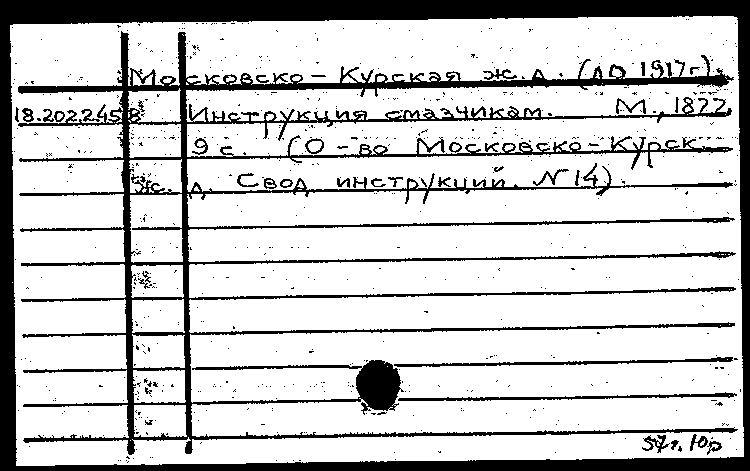 Московско-Курская ж. д. (до 1917г).
18.202.245 8 Инструкция смазчикам. М., 1877,
9 с. (О-во Московско-Курск.
ж. д. Свод инструкций. N 14).
57г. 10р